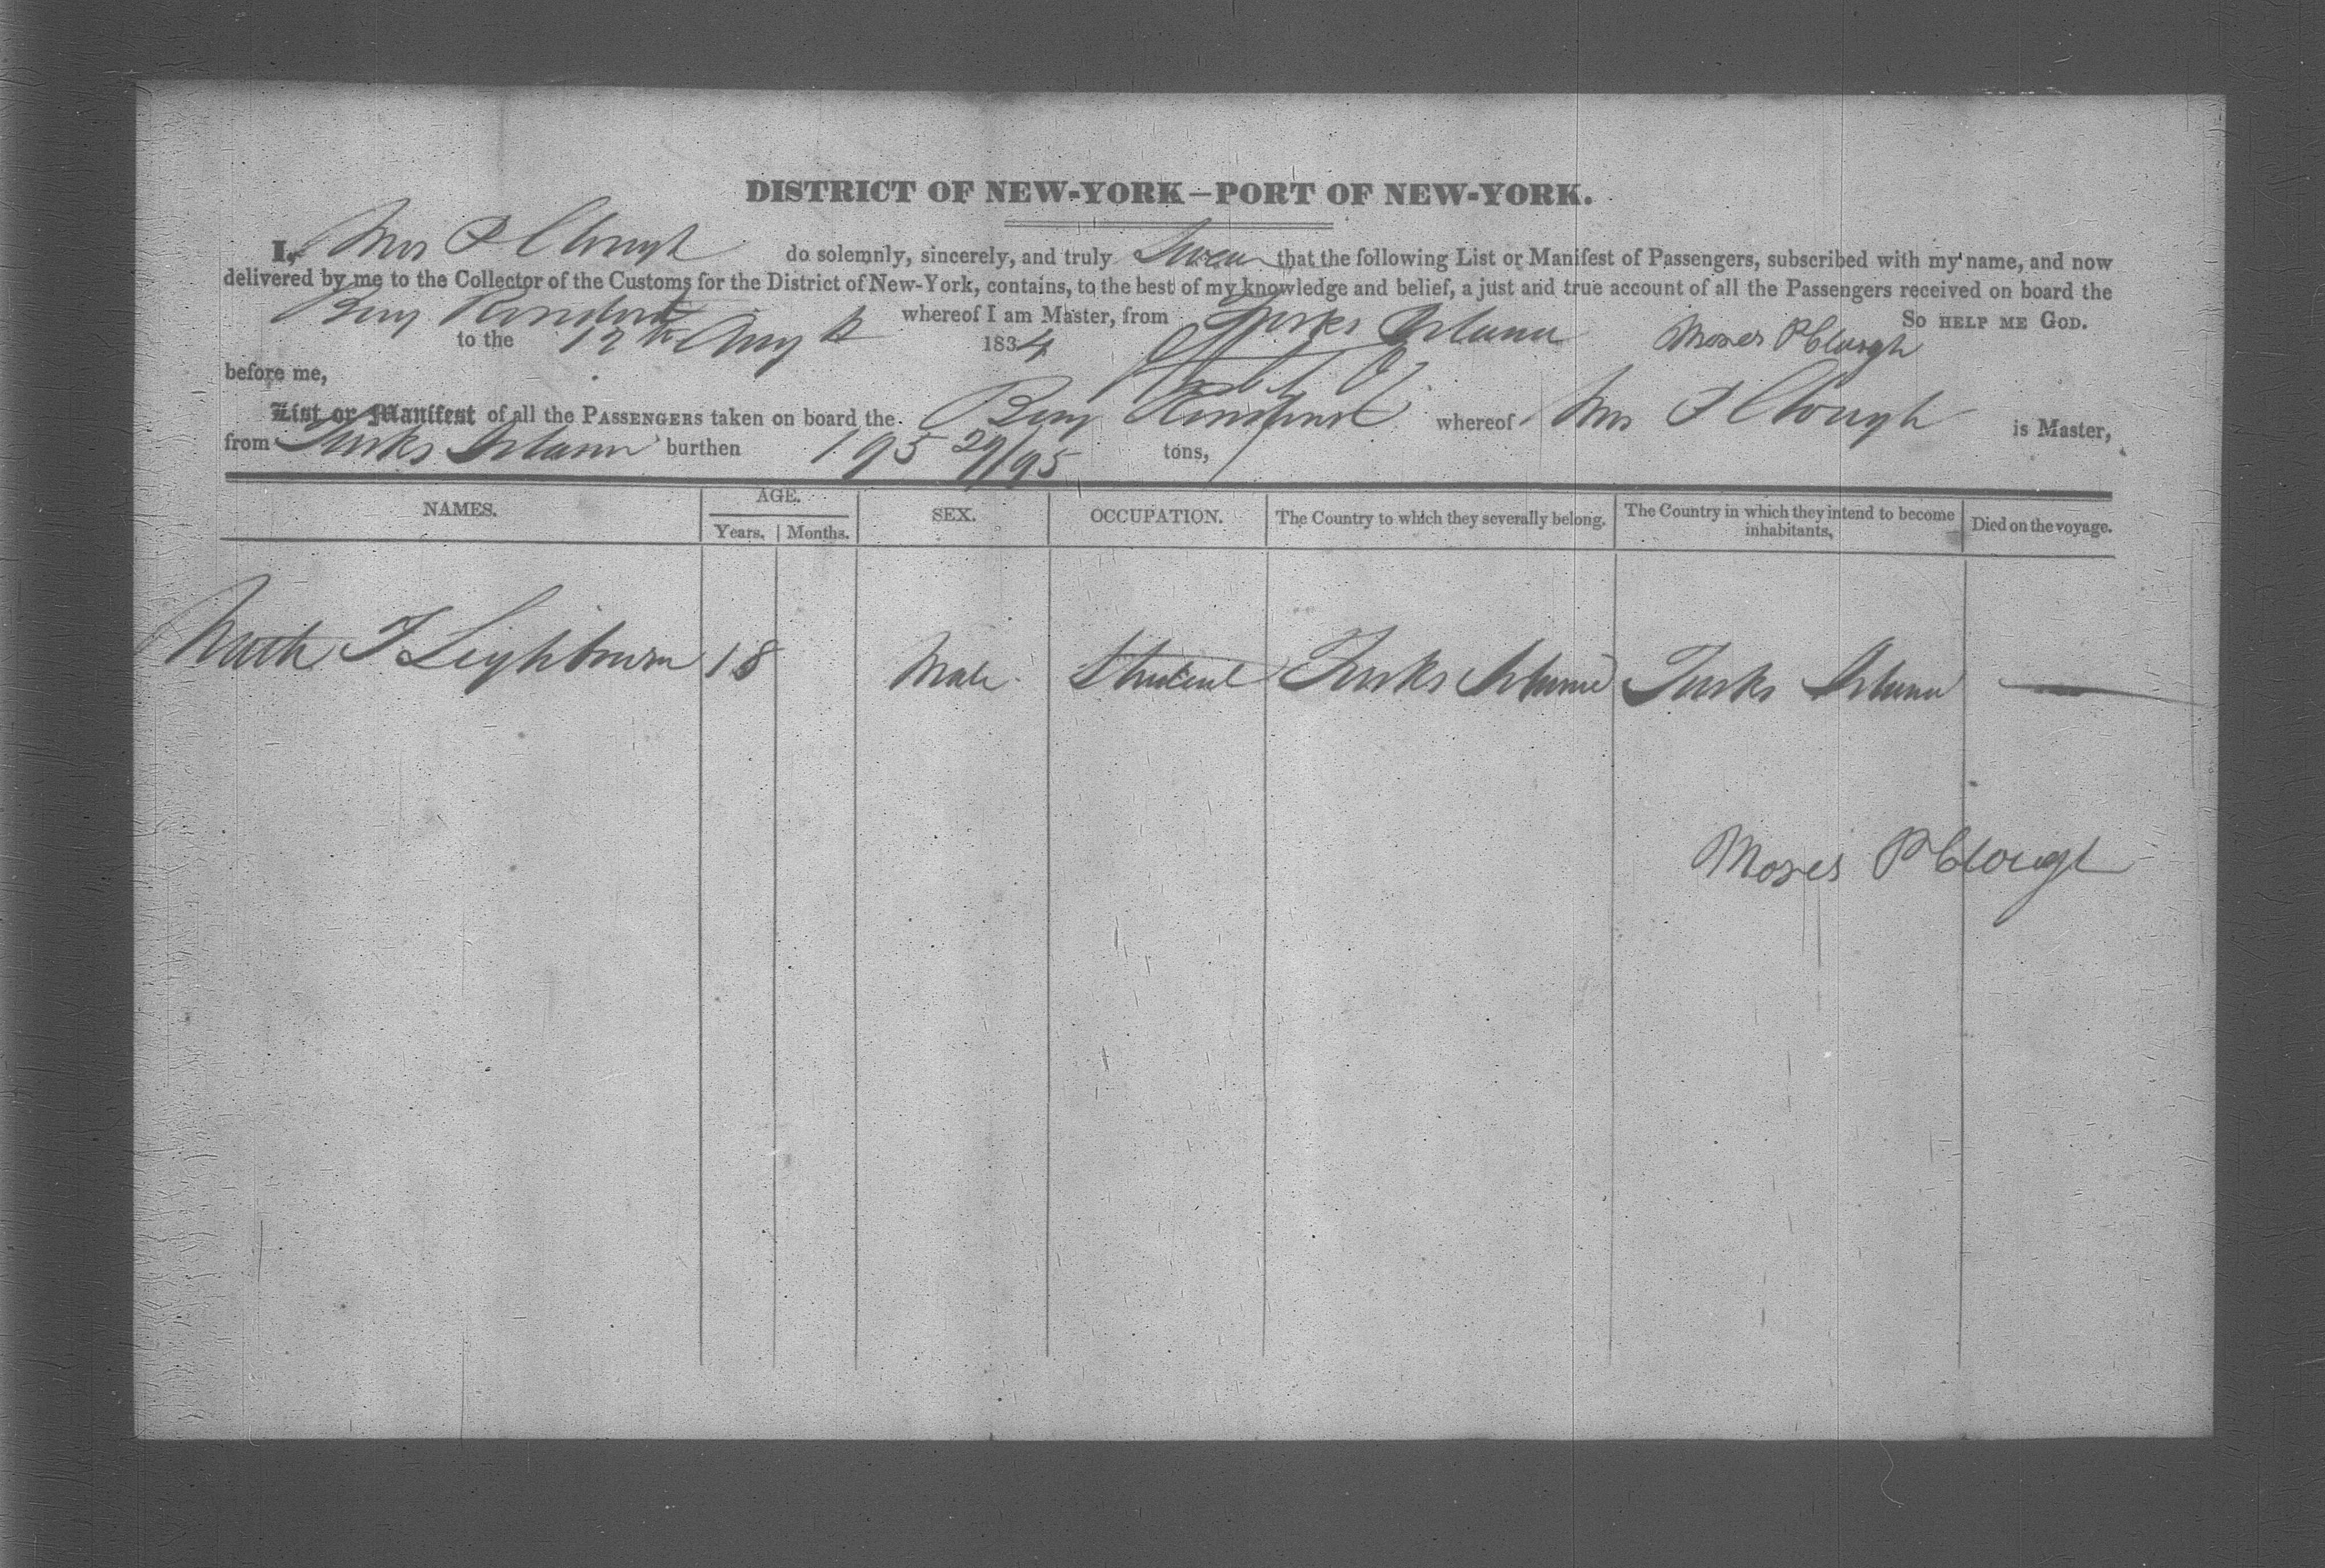 DISTRICT OF NEW-YORK—PORT OF NEW-YORK.
I, Mos P Clough do solemnly, sincerely, and truly Swear that the following List or Manifest of Passengers, subscribed with my name, and now
delivered by me to the Collector of the Customs for the District of New-York, contains, to the best of my knowledge and belief, a just and true account of all the Passengers received on board the
Brig whereof I am Master, from Turks Island So HELP ME GOD.
to the 12th Aug 1834 Moses P Clough
before me,
List or Manifest of all the PASSENGERS taken on board the Brig whereof Mos P Clough is Master,
from Turks Island burthen 195 29/95 tons,
NAMES. AGE. SEX. OCCUPATION. The Country to which they severally belong. The Country in which they intend to become inhabitants, Died on the voyage.
Years. Months.
Nath T Lighbourn 18 Male Student Turks Island Turks Island —
Moses P Clough